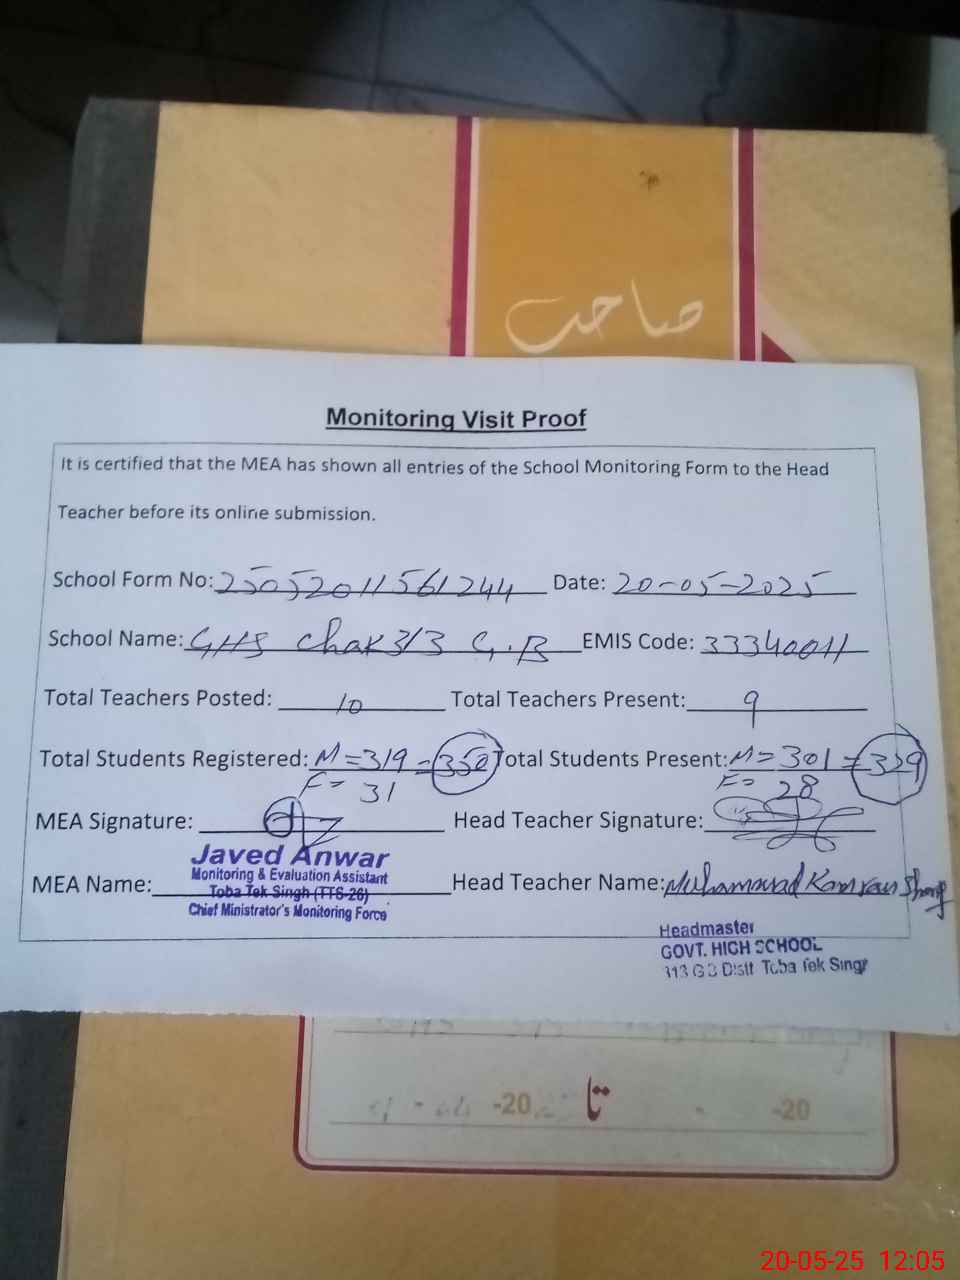 صاحب
Monitoring Visit Proof
It is certified that the MEA has shown all entries of the School Monitoring Form to the Head
Teacher before its online submission.
School Form No: 25052011561244 Date: 20-05-2025
School Name: GHS Chak 313 G.B EMIS Code: 33340011
Total Teachers Posted: 10 Total Teachers Present: 9
Total Students Registered: M=319 =350 Total Students Present: M=301 =329
F= 31 F= 28
MEA Signature: Head Teacher Signature:
Javed Anwar
Monitoring & Evaluation Assistant
MEA Name: Toba Tek Singh (TTS-26) Head Teacher Name: Muhammad Kamran
Chief Ministrator's Monitoring Force
Headmaster
GOVT. HIGH SCHOOL
313 GB Distt Toba Tek Singh
-20 تا -20
20-05-25 12:05